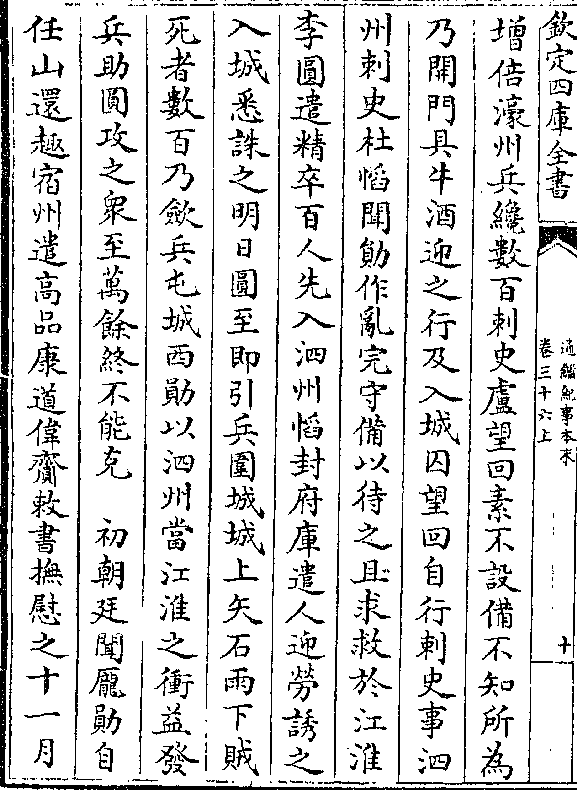 欽定四庫全書
通鑑紀事本末
卷三十六上
十
增倍濠州兵纔數百刺史盧望回素不設備不知所為
乃開門具牛酒迎之行及入城囚望回自行刺史事泗
州刺史杜慆聞勛作亂完守備以待之且求救於江淮
李圓遣精卒百人先入泗州慆封府庫遣人迎勞誘之
入城悉誅之明日圓至即引兵圍城城上矢石雨下賊
死者數百乃斂兵屯城西勛以泗州當江淮之衝益發
兵助圓攻之衆至萬餘終不能克　初朝廷聞龐勛自
任山還趣宿州遣高品康道偉齎敕書撫慰之十一月